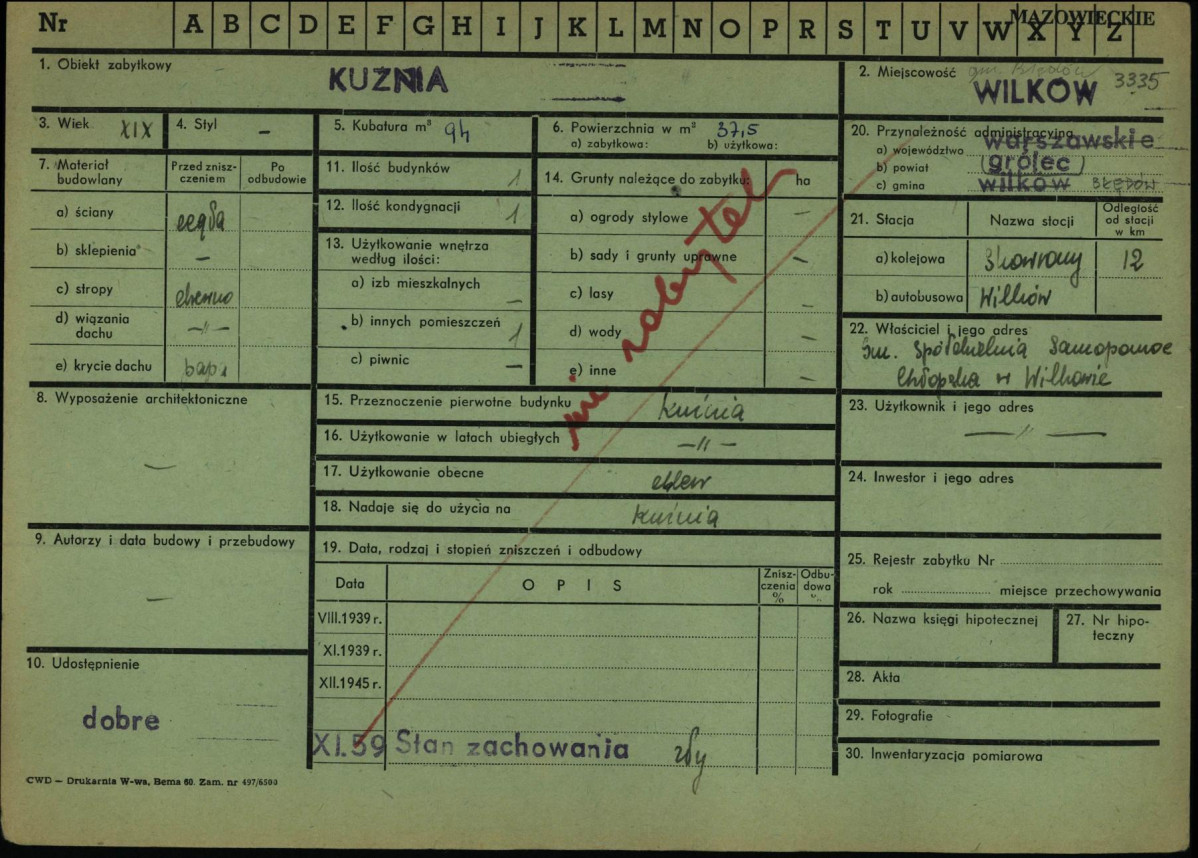 MAZOWIECKIE
Nr A B C D E F G H I J K L M N O P R S T U V W X Y Z
1. Obiekt zabytkowy
KUŹNIA
2. Miejscowość gm. Błędów 3335
WILKÓW
3. Wiek XIX
4. Styl —
5. Kubatura m³ 94
6. Powierzchnia w m² 37,5
a) zabytkowa: b) użytkowa:
7. Materiał budowlany
Przed zniszczeniem
Po odbudowie
a) ściany cegła
b) sklepienia —
c) stropy drewno
d) wiązania dachu —"—
e) krycie dachu papa
8. Wyposażenie architektoniczne
—
9. Autorzy i data budowy i przebudowy
—
10. Udostępnienie
dobre
11. Ilość budynków 1
12. Ilość kondygnacji 1
13. Użytkowanie wnętrza według ilości:
a) izb mieszkalnych —
b) innych pomieszczeń 1
c) piwnic —
14. Grunty należące do zabytku: ha
a) ogrody stylowe —
b) sady i grunty uprawne —
c) lasy —
d) wody —
e) inne —
nie zabytek
15. Przeznaczenie pierwotne budynku kuźnia
16. Użytkowanie w latach ubiegłych —"—
17. Użytkowanie obecne
18. Nadaje się do użycia na kuźnia
19. Data, rodzaj i stopień zniszczeń i odbudowy
Data OPIS Zniszczenia % Odbudowa %
VIII.1939 r.
XI.1939 r.
XII.1945 r.
XI.59 Stan zachowania zły
20. Przynależność administracyjna
a) województwo warszawskie
b) powiat grójec
c) gmina wilków BŁĘDÓW
21. Stacja Nazwa stacji Odległość od stacji w km
a) kolejowa 12
b) autobusowa Wilków
22. Właściciel i jego adres
Gm. Spółdzielnia Samopomoc
Chłopska w Wilkowie
23. Użytkownik i jego adres
—"—
24. Inwestor i jego adres
25. Rejestr zabytku Nr
rok miejsce przechowywania
26. Nazwa księgi hipotecznej
27. Nr hipoteczny
28. Akta
29. Fotografie
30. Inwentaryzacja pomiarowa
CWD — Drukarnia W-wa, Bema 60. Zam. nr 497/6500